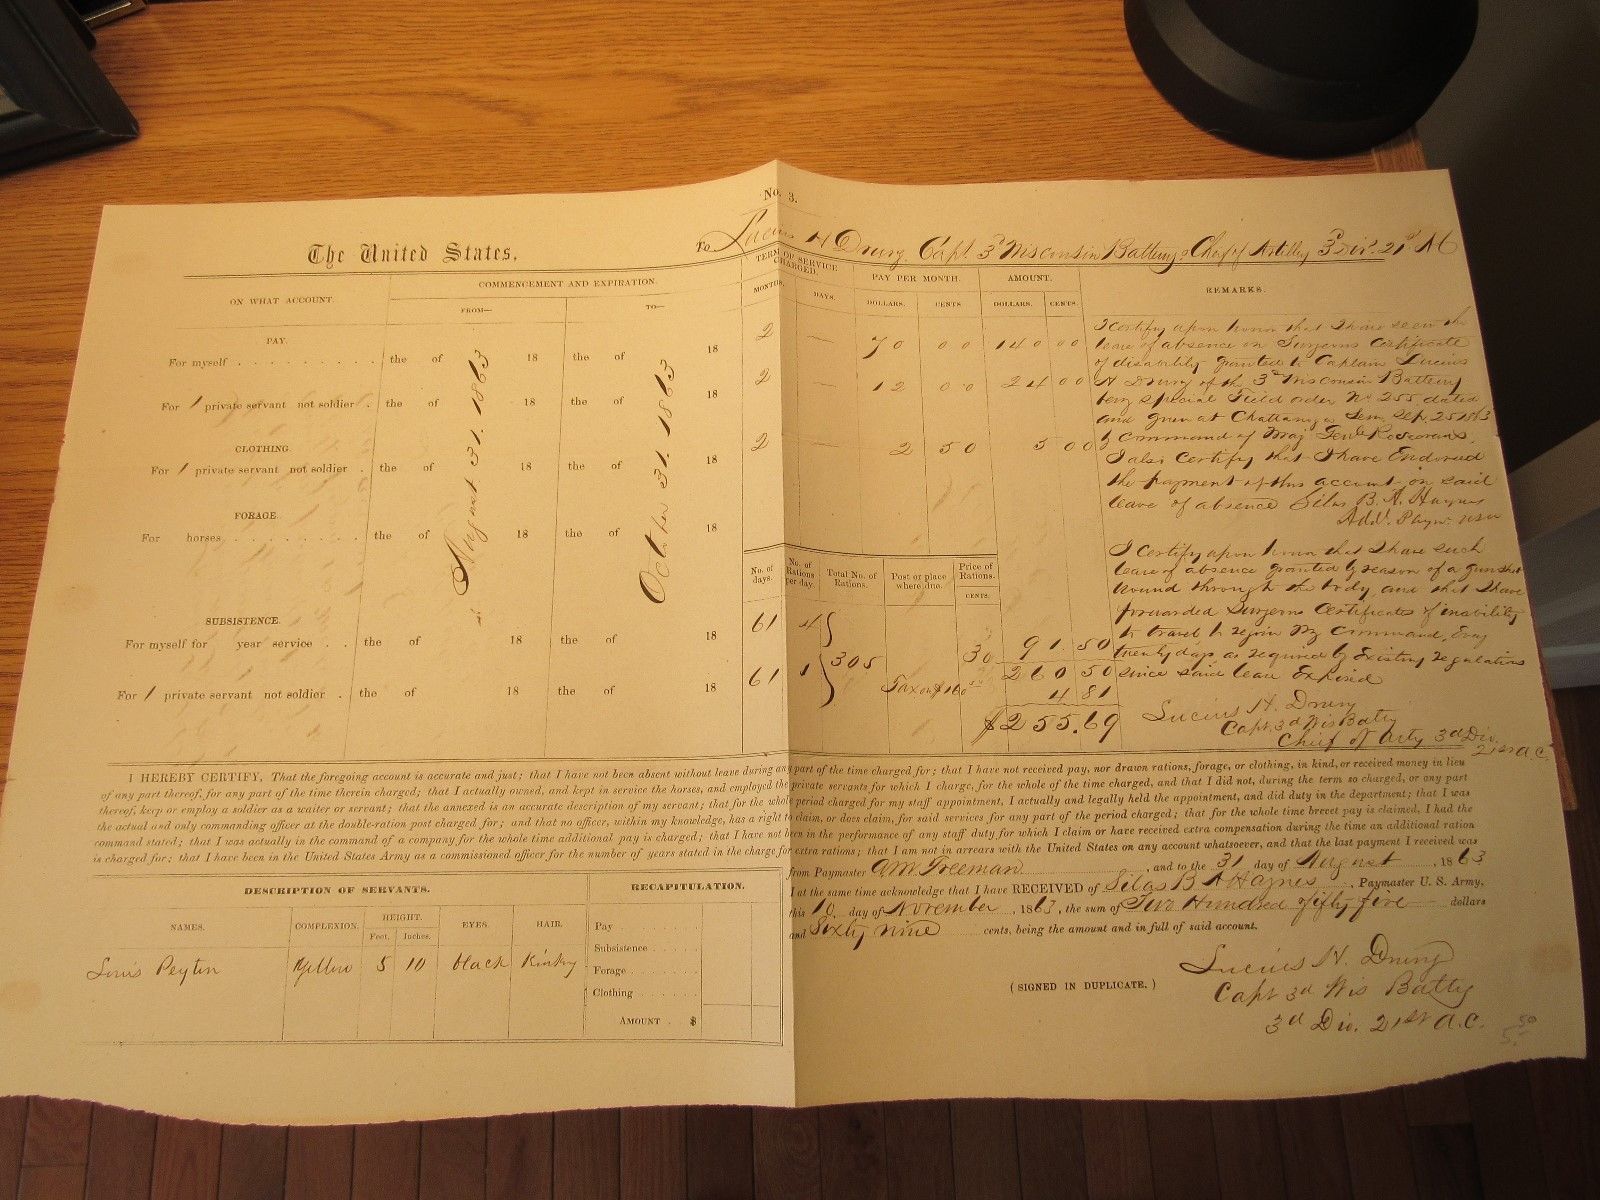 No. 3.
The United States, To Lucius H Drury Capt. 3d Wisconsin Battery & Chief of Artillery 3d Div. 21st A C
ON WHAT ACCOUNT.
COMMENCEMENT AND EXPIRATION.
FROM—
TO—
TERM OF SERVICE CHARGED.
MONTHS.
DAYS.
PAY PER MONTH.
DOLLARS.
CENTS
AMOUNT.
DOLLARS.
CENTS.
REMARKS.
PAY.
For myself . . . . . . . . . . the of 18 the of 18 2 — 70 00 140 00
For 1 private servant not soldier . the of 18 the of 18 2 — 12 00 24 00
CLOTHING.
For 1 private servant not soldier . the of 18 the of 18 2 — 2 50 5 00
FORAGE.
For horses . . . . . . . . the of 18 the of 18
August 31. 1863
October 31. 1863
No. of days.
No. of Rations per day.
Total No. of Rations.
Post or place where due.
Price of Rations.
CENTS.
SUBSISTENCE.
For myself for year service . the of 18 the of 18 61 4 305 30 91 50
260 50
For 1 private servant not soldier . . the of 18 the of 18 61 1 Tax on $160 4 81
$255.69
I certify upon honor that I have seen the
leave of absence on Surgeons Certificate
of disability granted to Captain Lucius
H Drury of the 3d Wisconsin Battery
being special Field order No 255 dated
and given at Chattanooga Tenn, Sep. 25 1863
by Command of Maj Genl Rosecrans.
I also certify that I have Endorsed
the payment of this account on said
leave of absence Silas B. A. Haynes
Addl. Paymr. USA
I certify upon honor that I have such
leave of absence granted by reason of a gunshot
wound through the body, and that I have
forwarded Surgeons Certificates of inability
to travel to rejoin my command, Every
twenty days as required by Existing regulations
since said leave Expired
Lucius H. Drury
Capt. 3d Wis Batty
Chief of Arty 3d Div.
21st A.C.
I HEREBY CERTIFY, That the foregoing account is accurate and just; that I have not been absent without leave during any part of the time charged for; that I have not received pay, nor drawn rations, forage, or clothing, in kind, or received money in lieu
of any part thereof, for any part of the time therein charged; that I actually owned, and kept in service the horses, and employed the private servants for which I charge, for the whole of the time charged, and that I did not, during the term so charged, or any part
thereof, keep or employ a soldier as a waiter or servant; that the annexed is an accurate description of my servant; that for the whole period charged for my staff appointment, I actually and legally held the appointment, and did duty in the department; that I was
the actual and only commanding officer at the double-ration post charged for; and that no officer, within my knowledge, has a right to claim, or does claim, for said services for any part of the period charged; that for the whole time brevet pay is claimed, I had the
command stated; that I was actually in the command of a company for the whole time additional pay is charged; that I have not been in the performance of any staff duty for which I claim or have received extra compensation during the time an additional ration
is charged for; that I have been in the United States Army as a commissioned officer for the number of years stated in the charge for extra rations; that I am not in arrears with the United States on any account whatsoever, and that the last payment I received was
from Paymaster A W Freeman , and to the 31 day of August , 1863
I at the same time acknowledge that I have RECEIVED of Silas B A Haynes , Paymaster U. S. Army,
this 10 day of November , 1863, the sum of Two Hundred & fifty five dollars
and Sixty nine cents, being the amount and in full of said account.
DESCRIPTION OF SERVANTS.
NAMES.
COMPLEXION.
HEIGHT.
Feet.
Inches.
EYES.
HAIR.
Louis Peyton Yellow 5 10 black Kinky
RECAPITULATION.
Pay . . . . . . .
Subsistence . . . . .
Forage . . . . . .
Clothing . . . . . .
AMOUNT . $
(SIGNED IN DUPLICATE.)
Lucius H. Drury
Capt 3d Wis Batty
3d Div. 21st A.C.